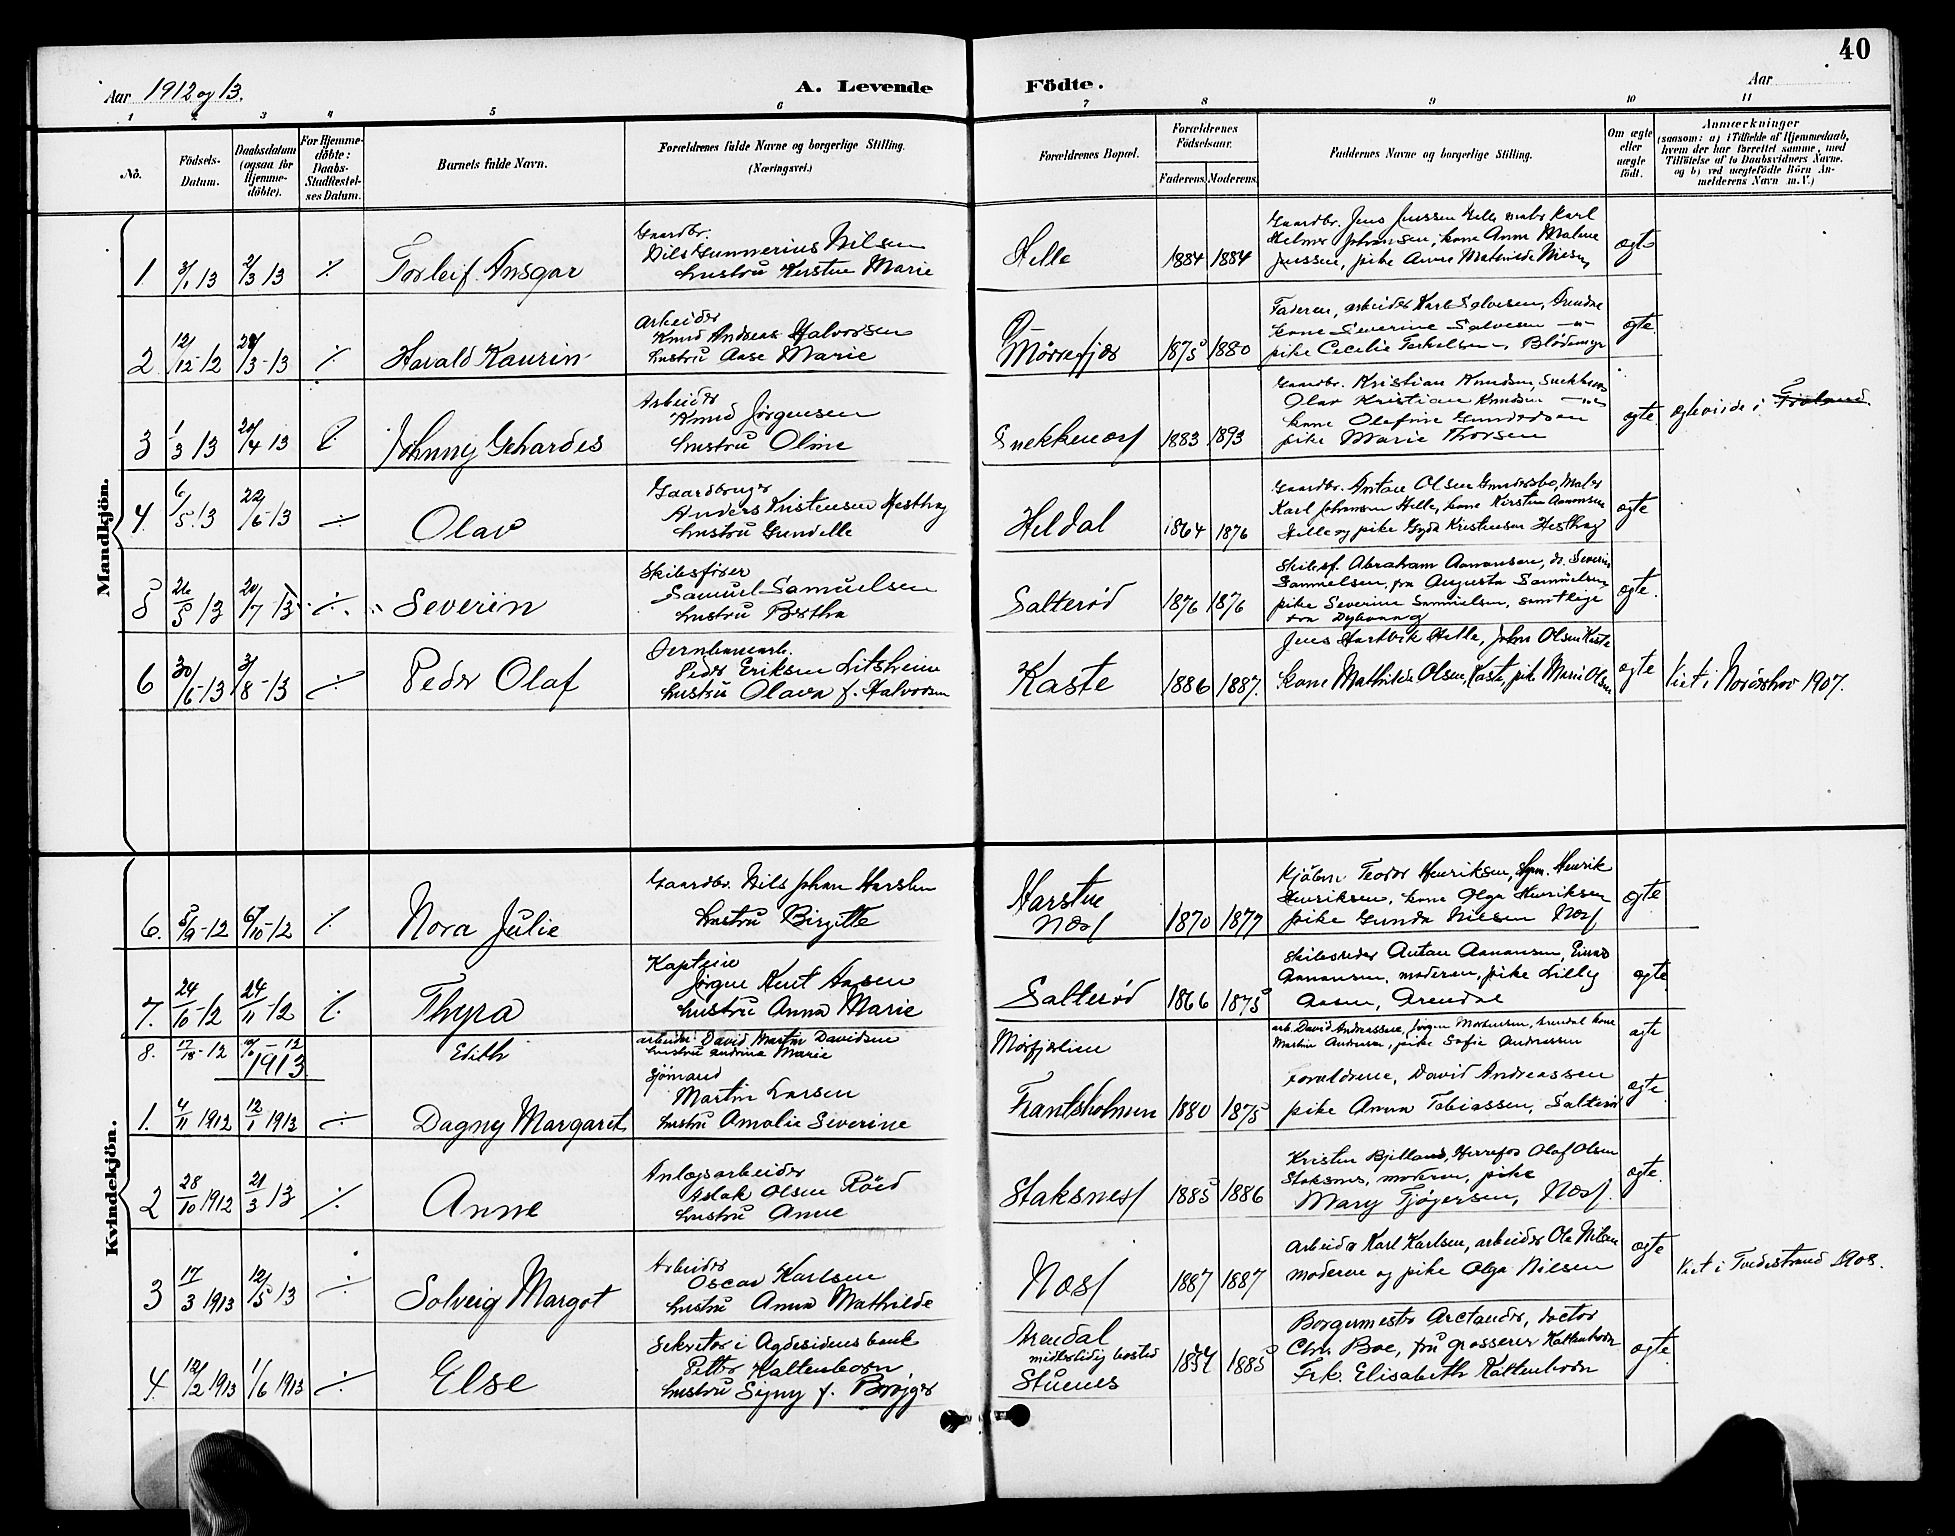 40
Aar 1912 og 13.
A. Levende Födte.
Aar
1 2 3 4 5 6 7 8 9 10 11
No.
Födsels-
Datum.
Daabsdatum
(ogsaa for
Hjemme-
döbte).
For Hjemme-
döbte:
Daabs-
Stadfæstel-
ses Datum.
Barnets fulde Navn.
Forældrenes fulde Navne og borgerlige Stilling.
(Næringsvei.)
Forældrenes Bopæl.
Forældrenes
Födselsaar.
Faderens. Moderens.
Faddernes Navne og borgerlige Stilling.
Om ægte
eller
uægte
födt.
Anmærkninger
(saasom: a) i Tilfælde af Hjemmedaab,
hvem der har forrettet samme, med
Tilföielse af to Daabsvidners Navne,
og b) ved uægtefödte Börn An-
melderens Navn m. V.)
Mandkjön.
1 3/1 13 2/3 13 ./.
Torleif Ansgar
Gaardbr.
Nils Gunnerius Nilsen
hustru Kirstine Marie
Helle
1884 1884
Gaardbr. Jens Jenssen Helle, maler Karl
Helmer Johansen, kone Anna Malene
Jenssen, pike Anna Mathilde
ægte
2 12/12-12 24/3-13 ./.
Harald Kaurin
Arbeider
Knud Andreas Halvorsen
hustru Aase Marie
Mörrefjær
1875 1880
Faderen, arbeider Karl Salvesen,
kone Severine Salvesen —"—
pike Cecelie Terkelsen,
ægte
3 1/3 13 20/4 13 ./.
Johnny Gehardes
Arbeider
Knud Jörgensen
hustru Oline
Snekkenæs
1883 1893
Gaardbr. Kristian Knudsen, Snekkenes
Olav Kristian Knudsen —"—
kone Olefine Gundersen
pike Marie Thorsen
ægte.
ægteviede i Froland.
4. 6/5 13 22/6-13 ./.
Olav
Gaardbruger
Anders Kristensen Hesthag
hustru Gundelle
Heldal
1864 1876
Gaardbr. Anton Olsen Gundersbo, Maler
Karl Johansen Helle, kone Kirsten Aanonsen
Helle og pike Gyda Kristensen Hesthag
ægte
5 26/5 13 20/7-13 ./.
Severin
Skibsförer
Samuel Samuelsen
hustru Bertha
Salteröd
1876 1876
Skibsf. Abraham Aanonsen, do. Severin
Samuelsen, fru Augusta Samuelsen
pike Severine Samuelsen, samtlige
fra Dybvaag
ægte.
6 30/6-13 3/8-13 ./.
Peder Olaf
Jernbanearb.
Peder Eriksen Litsheim
hustru Olava f. Halvorsen
Kaste
1886 1887.
Jens Hartvik Helle, John Olsen Kaste
kone Mathilde Olsen, Kaste, pik. Marie Olsen
ægte
Viet i Norderhov 1907.
Kvindekjön.
6. 8/9-12 6/10-12 ./.
Nora Julie
Gaardbr. Nils Johan Harsten
hustru Birgitte
Harstue
Næs
1870 1877
Kjöbm Teodor Henriksen, Henrik
Henriksen, kone Olga Henriksen
pike Gunda Nielsen Næs
ægte
7. 24/10-12 24/11-12 ./.
Thyra
Kaptein
Jörgen Knut Aasen
hustru Anna Marie
Salteröd
1866 1875
Skibsreder Anton Aanonsen, Einar
Aanonsen, moderen, pike Lilly
Aasen, Arendal
ægte
8. 17/10-12 -12
1913
Edith
arbeider David Martin Davidsen
hustru Andrine Marie
Mörfjærlien
arb. David Andreassen, Jörgen Mortensen, Arendal kone
Martine Andersen, pike Sofie Andreassen
ægte
1. 4/11 1912 12/1 1913 ./.
Dagny Margaret
Sjömand
Martin Larsen
hustru Amalie Severine
Frantsholmen
1880 1875
Forældrene, David Andreassen
pike Anna Tobiassen, Salteröd
ægte
2 28/10 1912 21/3 13 ./.
Anne
Anlægsarbeider
Aslak Olsen Röed
hustru Anne
Staksnes
1885 1886
Kristen Bjelland, Herrefos Olaf Olsen
Staksnes, moderen, pike
Mary Tjögersen, Næs.
ægte.
3 17/3 1913 12/5 13 ./.
Solveig Margot
Arbeider
Oscar Karlsen
hustru Anna Mathilde
Næs
1887 1887
Arbeider Karl Karlsen, arbeider Ole Nilsen
moderen og pike Olga Nilsen
ægte
Viet i Tvedestrand 1908.
4. 12/2 1913 1/6 1913 ./.
Else
Sekretær i Agdesidens bank
Petter Kaltenborn
hustru Signy f.
Arendal
midlertidig bosted
Stuenes
1885
Borgermester Arctander, doctor
Chr. Boe, fru grosserer Kaltenborn
Frk. Elisabeth Kaltenborn
ægte.